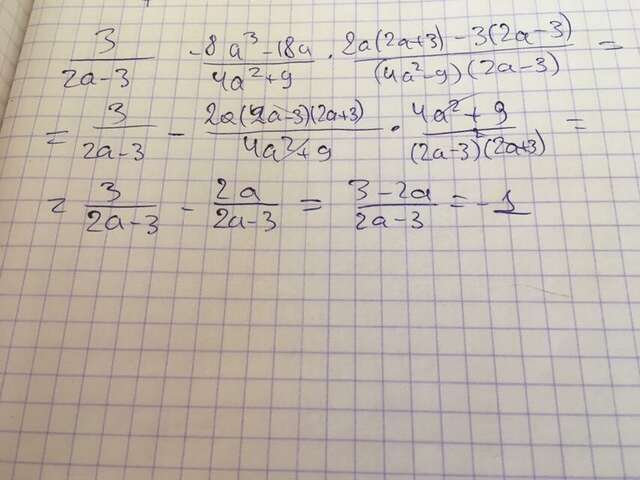 3/(2a-3) - (8a³-18a)/(4a²+9) · (2a(2a+3) - 3(2a-3))/((4a²-9)(2a-3)) =
= 3/(2a-3) - (2a(2a-3)(2a+3))/(4a²+9) · (4a²+9)/((2a-3)²(2a+3)) =
= 3/(2a-3) - 2a/(2a-3) = (3-2a)/(2a-3) = -1